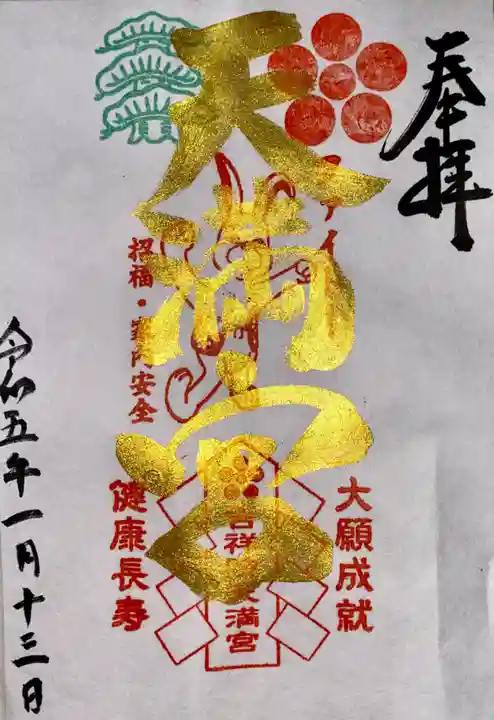 奉拝
天満宮
大願成就
招福・家内安全
健康長寿
吉祥天満宮
令和五年一月十三日